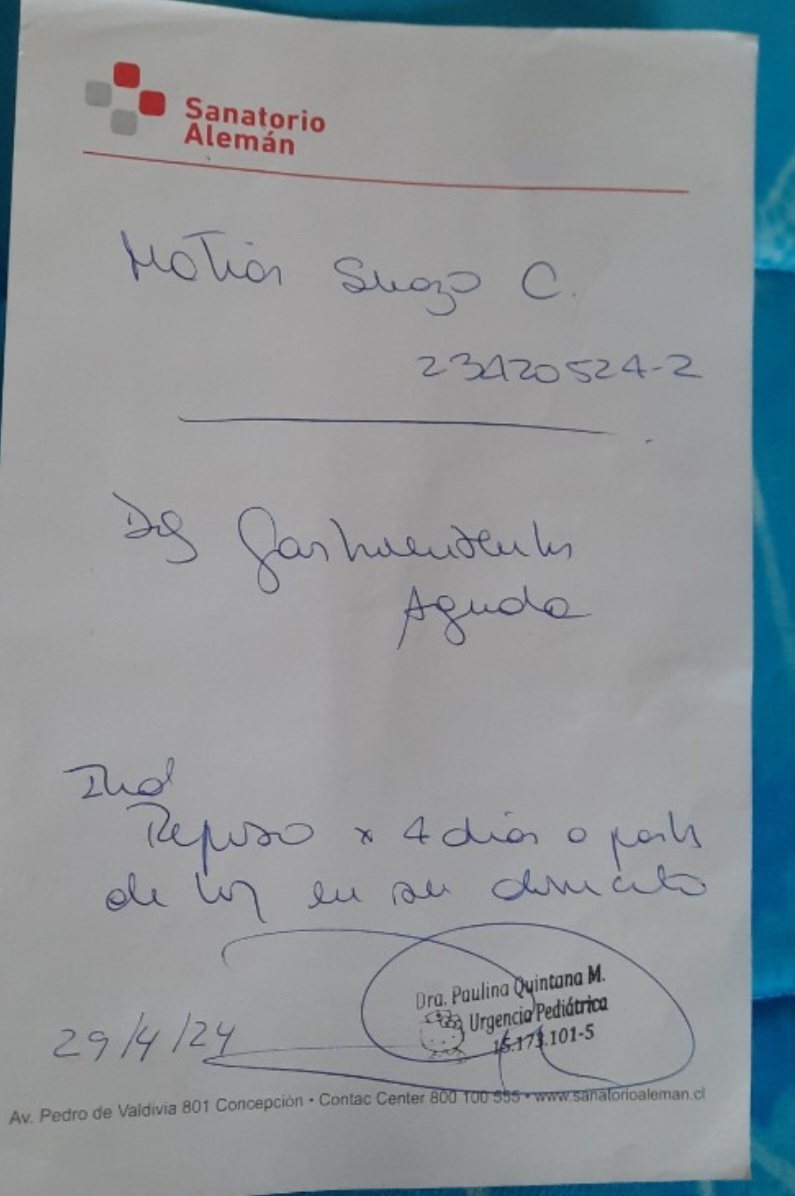 Sanatorio
Alemán
Matias Suazo C.
23420524-2
Dg Gastroenteritis
Aguda
Ind
Reposo x 4 dias a partir
de hoy en su domicilio
Dra. Paulina Quintana M.
Urgencia Pediátrica
15.173.101-5
29/4/24
Av. Pedro de Valdivia 801 Concepción • Contac Center 800 100 555 • www.sanatorioaleman.cl